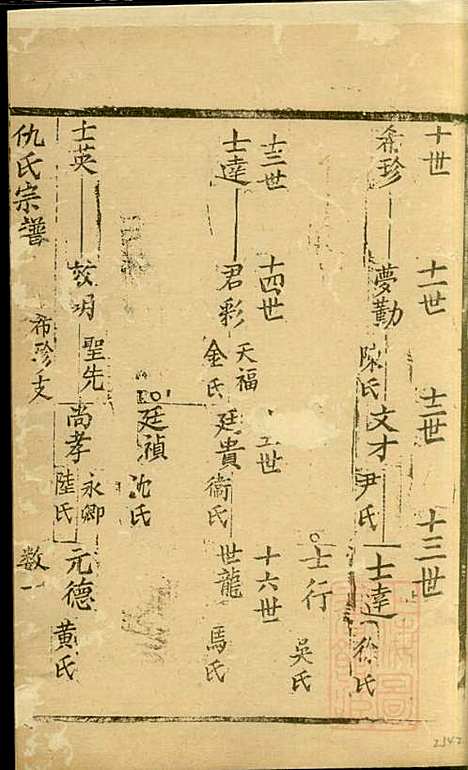 十世 十一世 十二世 十三世
希珍 夢勤 陳氏 文才 尹氏 士達 徐氏
士行 吳氏
十三世 十四世 五世 十六世
士達 君彩 天福 金氏 廷貴 衞氏 世龍 馬氏
廷禎 沈氏
士英 敉明 聖先 尚孝 永卿 陸氏 元德 黄氏
仇氏宗譜 希珍支 数一
2342